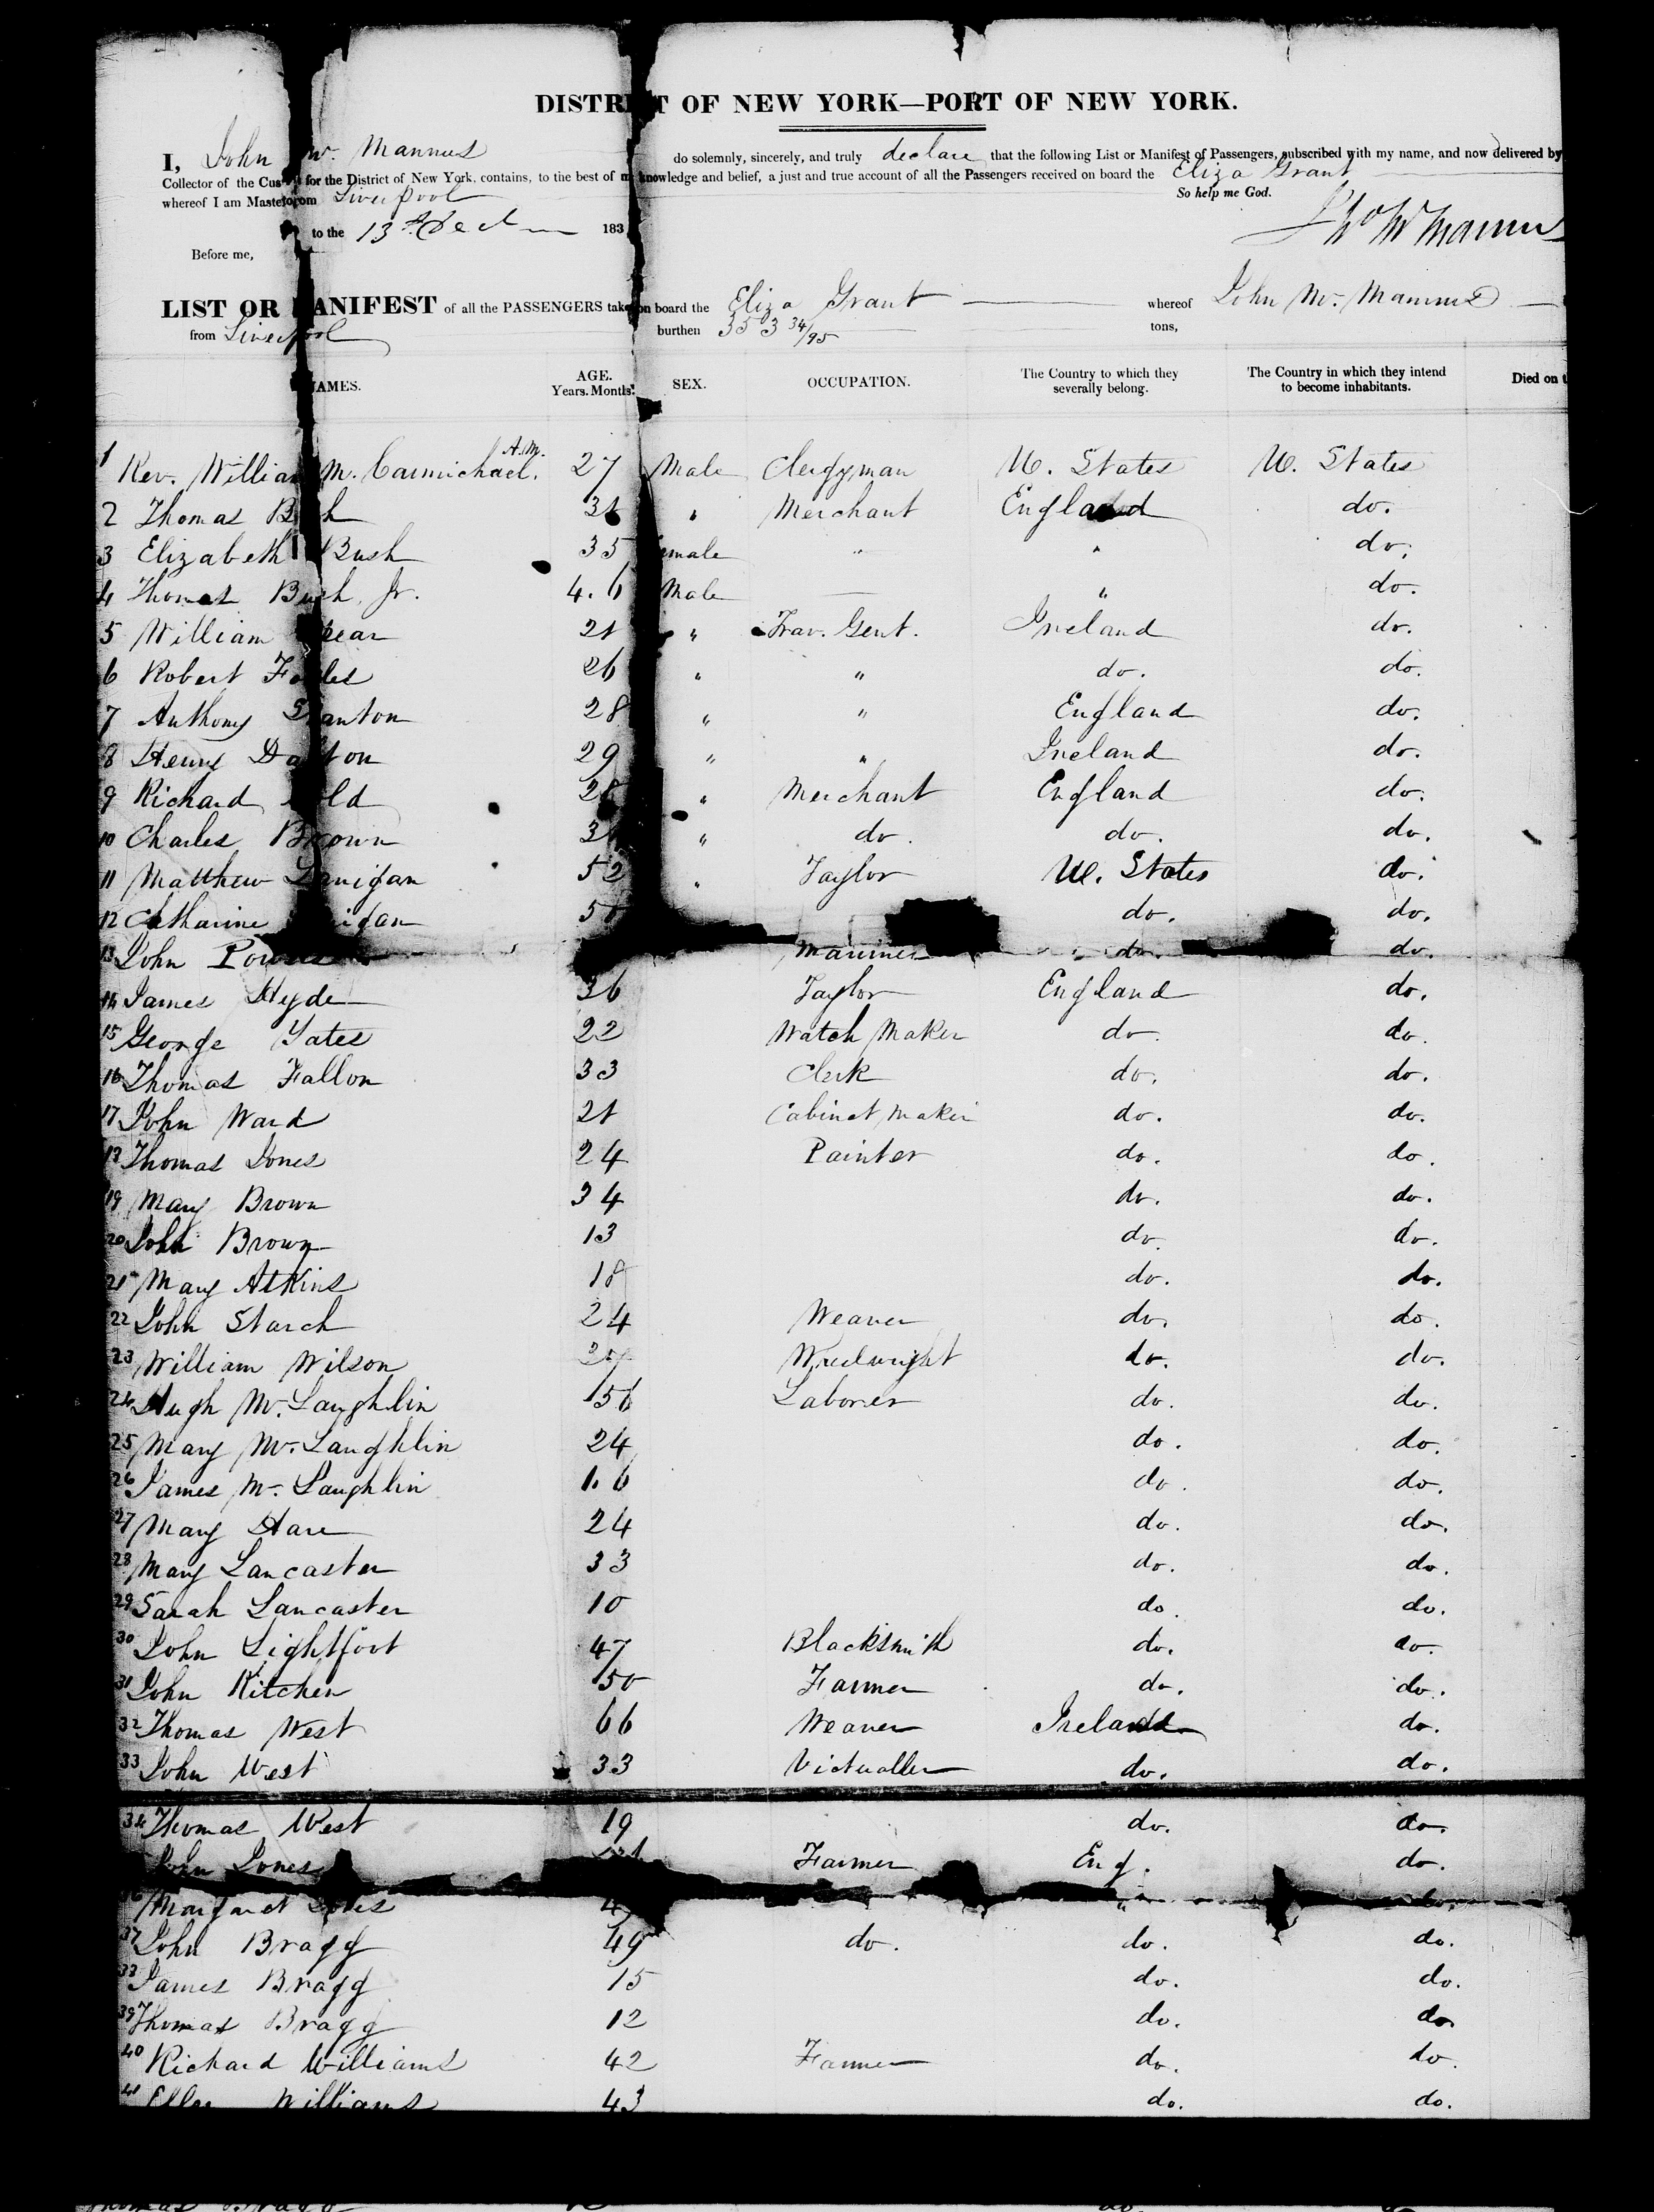 DISTRICT OF NEW YORK—PORT OF NEW YORK.
I, John W. Mannus do solemnly, sincerely, and truly declare that the following List or Manifest of Passengers, subscribed with my name, and now delivered by
Collector of the Cus for the District of New York, contains, to the best of my knowledge and belief, a just and true account of all the Passengers received on board the Eliza Grant
whereof I am Master from Liverpool So help me God.
to the 13th Dec 183
Before me,
LIST OR MANIFEST of all the PASSENGERS taken on board the Eliza Grant whereof John W. Mannus
from Liverpool burthen 353 34/95 tons,
NAMES. AGE. Years. Months. SEX. OCCUPATION. The Country to which they severally belong. The Country in which they intend to become inhabitants. Died on t
1 Rev. William M. Carmichael. A.M. 27 Male Clergyman U. States U. States
2 Thomas B h 31 " Merchant England do.
3 Elizabeth Bush 35 emale " " do.
4 Thomas Bush, Jr. 4.6 Male — " do.
5 William ear 21 " Trav. Gent. Ireland do.
6 Robert F les 26 " " do. do.
7 Anthony S anton 28 " " England do.
8 Henry Dalton 29 " " Ireland do.
9 Richard ld 28 " Merchant England do.
10 Charles Brown 3 " do. do. do.
11 Matthew anigan 52 " Taylor U. States do.
12 Catharine igan 5 do. do.
13 John Pow Mariner do. do.
14 James Hyde 36 Taylor England do.
15 George Yates 22 Watch Maker do. do.
16 Thomas Fallon 33 Clerk do. do.
17 John Ward 21 Cabinet Maker do. do.
18 Thomas Jones 24 Painter do. do.
19 Mary Brown 34 do. do.
20 John Brown 13 do. do.
21 Mary Atkins 18 do. do.
22 John Starch 24 Weaver do. do.
23 William Wilson Wheelwright do. do.
24 Hugh Mc.Laughlin 56 Laborer do. do.
25 Mary Mc.Laughlin 24 do. do.
26 James Mc.Laughlin 1.6 do. do.
27 Mary Hare 24 do. do.
28 Mary Lancaster 33 do. do.
29 Sarah Lancaster 10 do. do.
30 John Lightfoot 47 Blacksmith do. do.
31 John Kitchen 50 Farmer do. do.
32 Thomas West 66 Weaver Ireland do.
33 John West 33 Victualler do. do.
34 Thomas West 19 do. do.
John Jones Farmer Eng. do.
36 Margaret Jones 4 " do.
37 John Bragg 49 do. do. do.
38 James Bragg 15 do. do.
39 Thomas Bragg 12 do. do.
40 Richard Williams 42 Farmer do. do.
41 Ellen Williams 43 do. do.